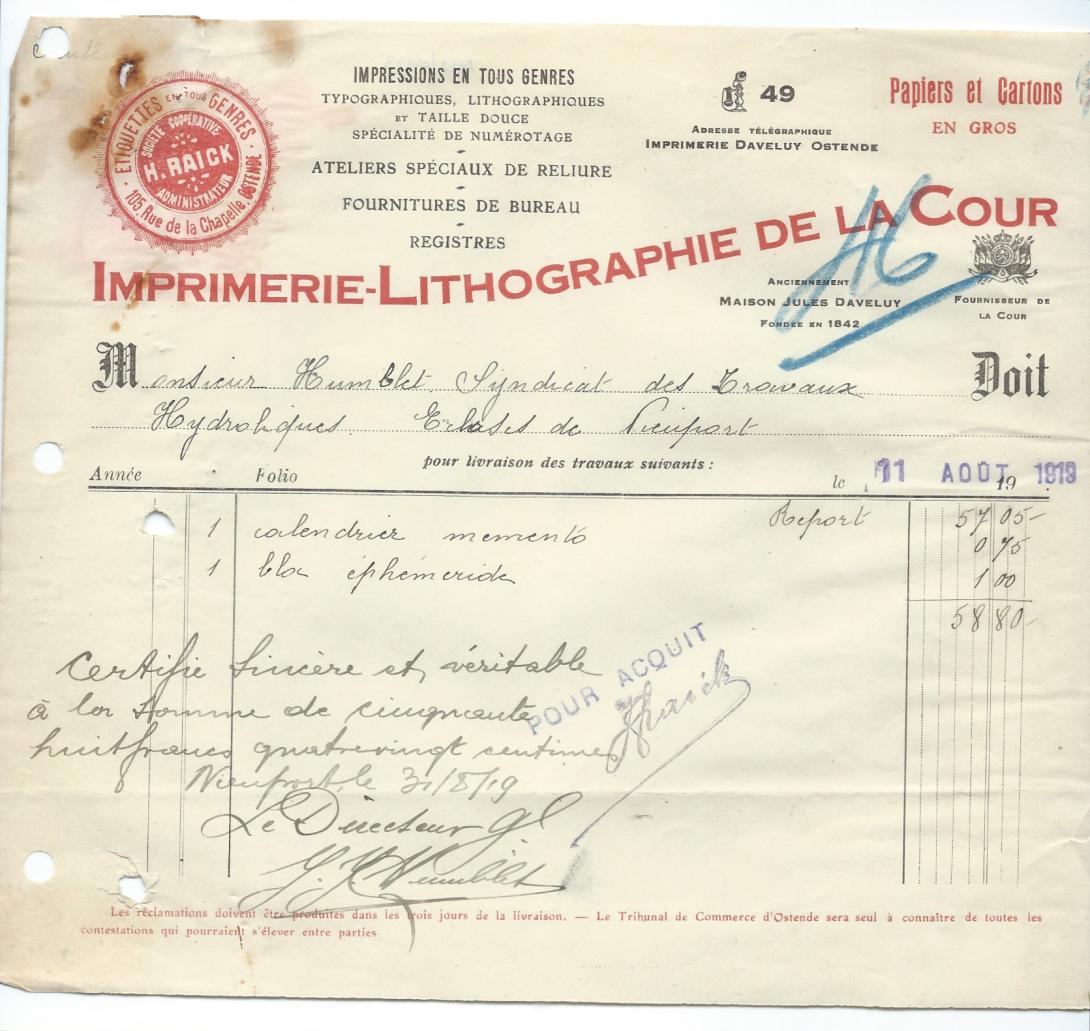 ETIQUETTES EN TOUS GENRES
SOCIÉTÉ COOPÉRATIVE
H. RAICK
ADMINISTRATEUR
105, Rue de la Chapelle, OSTENDE
IMPRESSIONS EN TOUS GENRES
TYPOGRAPHIQUES, LITHOGRAPHIQUES
ET TAILLE DOUCE
SPÉCIALITÉ DE NUMÉROTAGE
ATELIERS SPÉCIAUX DE RELIURE
FOURNITURES DE BUREAU
REGISTRES
49
ADRESSE TÉLÉGRAPHIQUE
IMPRIMERIE DAVELUY OSTENDE
Papiers et Cartons
EN GROS
IMPRIMERIE-LITHOGRAPHIE DE LA COUR
ANCIENNEMENT
MAISON JULES DAVELUY
FONDÉE EN 1842
FOURNISSEUR DE
LA COUR
Monsieur Humblet Syndicat des Travaux Doit
Hydroliques. Ecluses de Nieuport
pour livraison des travaux suivants :
Année Folio le 11 AOÛT 19 1919
Report 57 05-
1 calendrier memento 0 75
1 bloc éphéméride 1 00
58 80-
Certifie sincère et véritable
à la somme de cinquante
huit francs quatre vingt centimes
Nieuport, le 31/8/19
Le Directeur Gl
Humblet
POUR ACQUIT
HRaick
Les réclamations doivent être produites dans les trois jours de la livraison. — Le Tribunal de Commerce d'Ostende sera seul à connaître de toutes les
contestations qui pourraient s'élever entre parties.